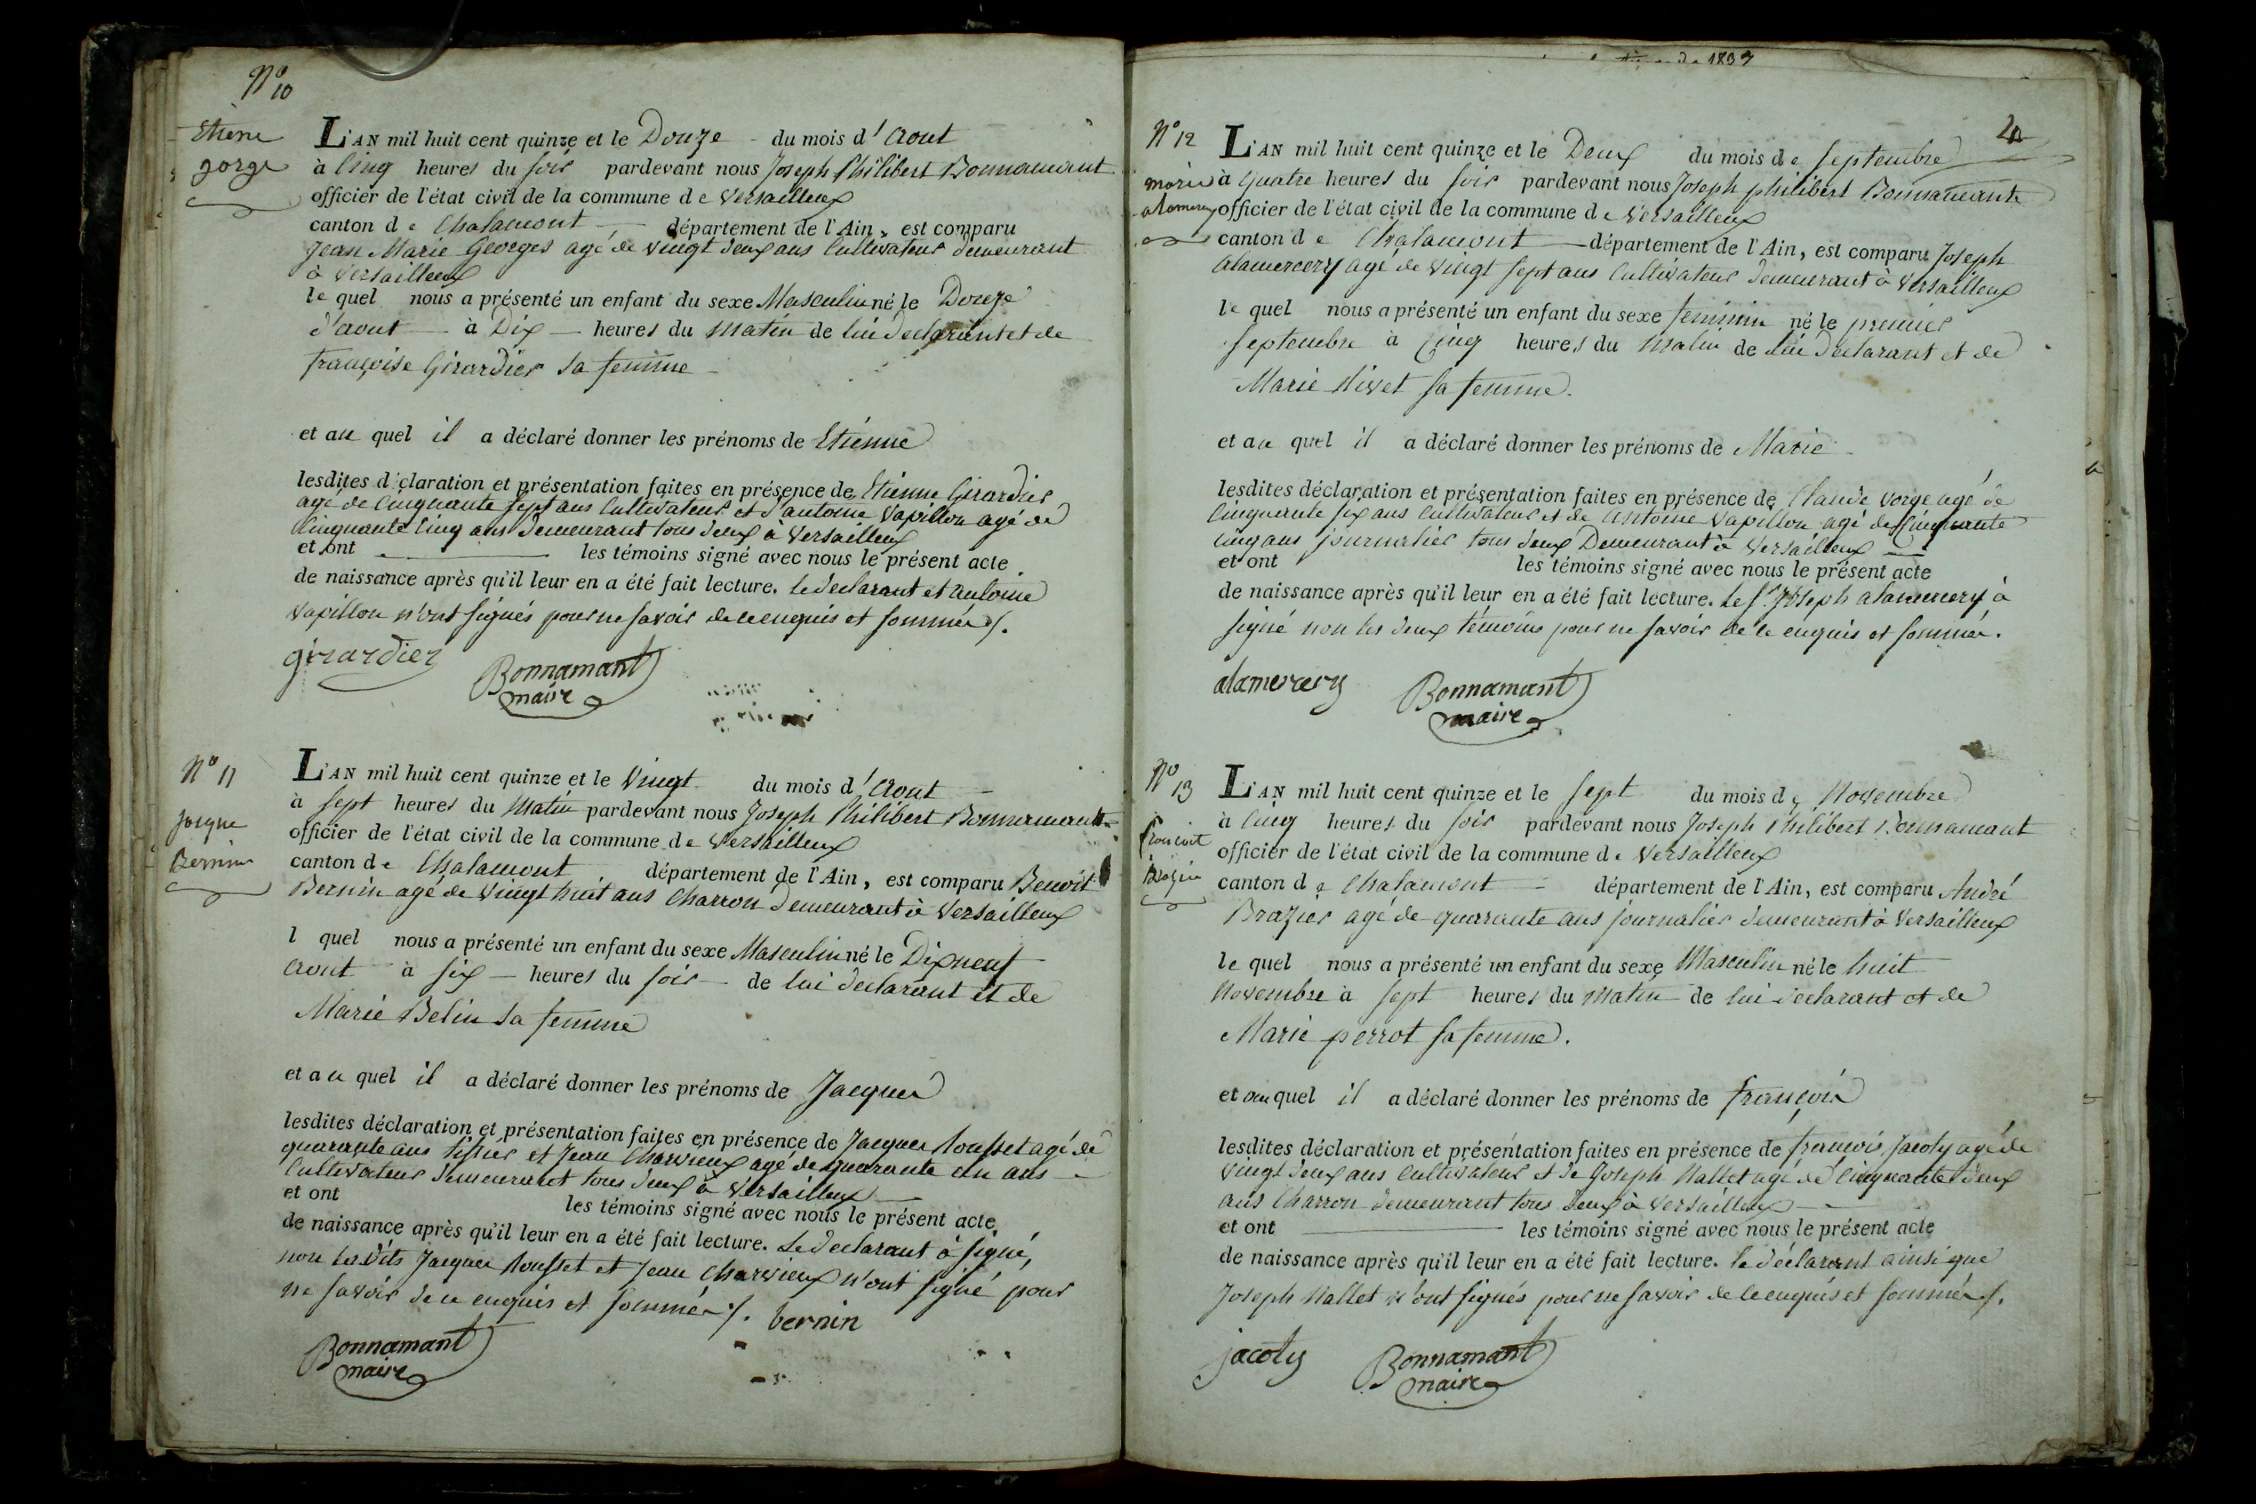 N° 10
Etiene
gorge
L'AN mil huit cent quinze et le Douze du mois d'Aout
à Cinq heures du soir pardevant nous Joseph Philibert Bonnamant
officier de l'état civil de la commune de Versailleux
canton de Chalamont département de l'Ain, est comparu
Jean Marie Georges agé de vingt deux ans Cultivateur demeurant
à Versailleux
le quel nous a présenté un enfant du sexe Masculin né le Douze
d'aout à Dix heures du matin de lui declarant et de
françoise Girardier sa femme
et au quel il a déclaré donner les prénoms de Etienne
lesdites déclaration et présentation faites en présence de Etienne Girardier
agé de Cinquante sept ans Cultivateur et d'antoine Vapillon agé de
Cinquante Cinq ans Demeurant tous deux à Versailleux
et ont les témoins signé avec nous le présent acte
de naissance après qu'il leur en a été fait lecture. Le declarant et antoine
Vapillon n'ont signés pour ne savoir de ce enquis et sommés /.
girardier
Bonnamant
maire
N° 11
Jacque
Bernin
L'AN mil huit cent quinze et le Vingt du mois d'Aout
à sept heures du Matin pardevant nous Joseph Philibert Bonnamant
officier de l'état civil de la commune de Versailleux
canton de Chalamont département de l'Ain, est comparu Benoit
Bernin agé de Vingt huit ans Charron demeurant à Versailleux
l quel nous a présenté un enfant du sexe Masculin né le Dixneuf
Aout à six heures du soir de lui declarant et de
Marie Belin sa femme
et au quel il a déclaré donner les prénoms de Jacques
lesdites déclaration et présentation faites en présence de Jacques Rousset agé de
quarante ans tissier et Jean Charvieux agé de quarante un ans
Cultivateur demeurant tous deux à Versailleux
et ont les témoins signé avec nous le présent acte
de naissance après qu'il leur en a été fait lecture. Le declarant à signé,
non les dits Jacques Rousset et Jean Charvieux n'ont signé pour
ne savoir de ce enquis et sommés /. bernin
Bonnamant
maire
de 1837
20
N° 12
marie
alamercery
L'AN mil huit cent quinze et le Deux du mois de septembre
à quatre heures du soir pardevant nous Joseph philibert Bonnamant
officier de l'état civil de la commune de Versailleux
canton de Chalamont département de l'Ain, est comparu Joseph
alamercery agé de vingt sept ans Cultivateur demeurant à Versailleux
le quel nous a présenté un enfant du sexe feminin né le premier
septembre à Cinq heures du matin de lui declarant et de
Marie nivet sa femme.
et au quel il a déclaré donner les prénoms de Marie
lesdites déclaration et présentation faites en présence de Claude Vorge agé de
Cinquante six ans Cultivateur et de Antoine Vapillon agé de Cinquante
Cinq ans journalier tous deux Demeurant à Versailleux
et ont les témoins signé avec nous le présent acte
de naissance après qu'il leur en a été fait lecture. Le sr Joseph alamercery à
signé non les deux témoins pour ne savoir de ce enquis et sommés.
alamercery
Bonnamant
maire
N° 13
francoit
Brazier
L'AN mil huit cent quinze et le sept du mois de Novembre
à Cinq heures du soir pardevant nous Joseph Philibert Bonnamant
officier de l'état civil de la commune de Versailleux
canton de Chalamont département de l'Ain, est comparu André
Brazier agé de quarante ans journalier demeurant à Versailleux
le quel nous a présenté un enfant du sexe Masculin né le huit
Novembre à sept heures du matin de lui declarant et de
Marie perrot sa femme.
et au quel il a déclaré donner les prénoms de françois
lesdites déclaration et présentation faites en présence de françois Jacoty agé de
vingt deux ans Cultivateur et de Joseph Mallet agé de Cinquante deux
ans Charron demeurant tous deux à Versailleux
et ont les témoins signé avec nous le présent acte
de naissance après qu'il leur en a été fait lecture. Le déclarant ainsi que
Joseph Mallet n'ont signés pour ne savoir de ce enquis et sommés /.
jacoty
Bonnamant
maire